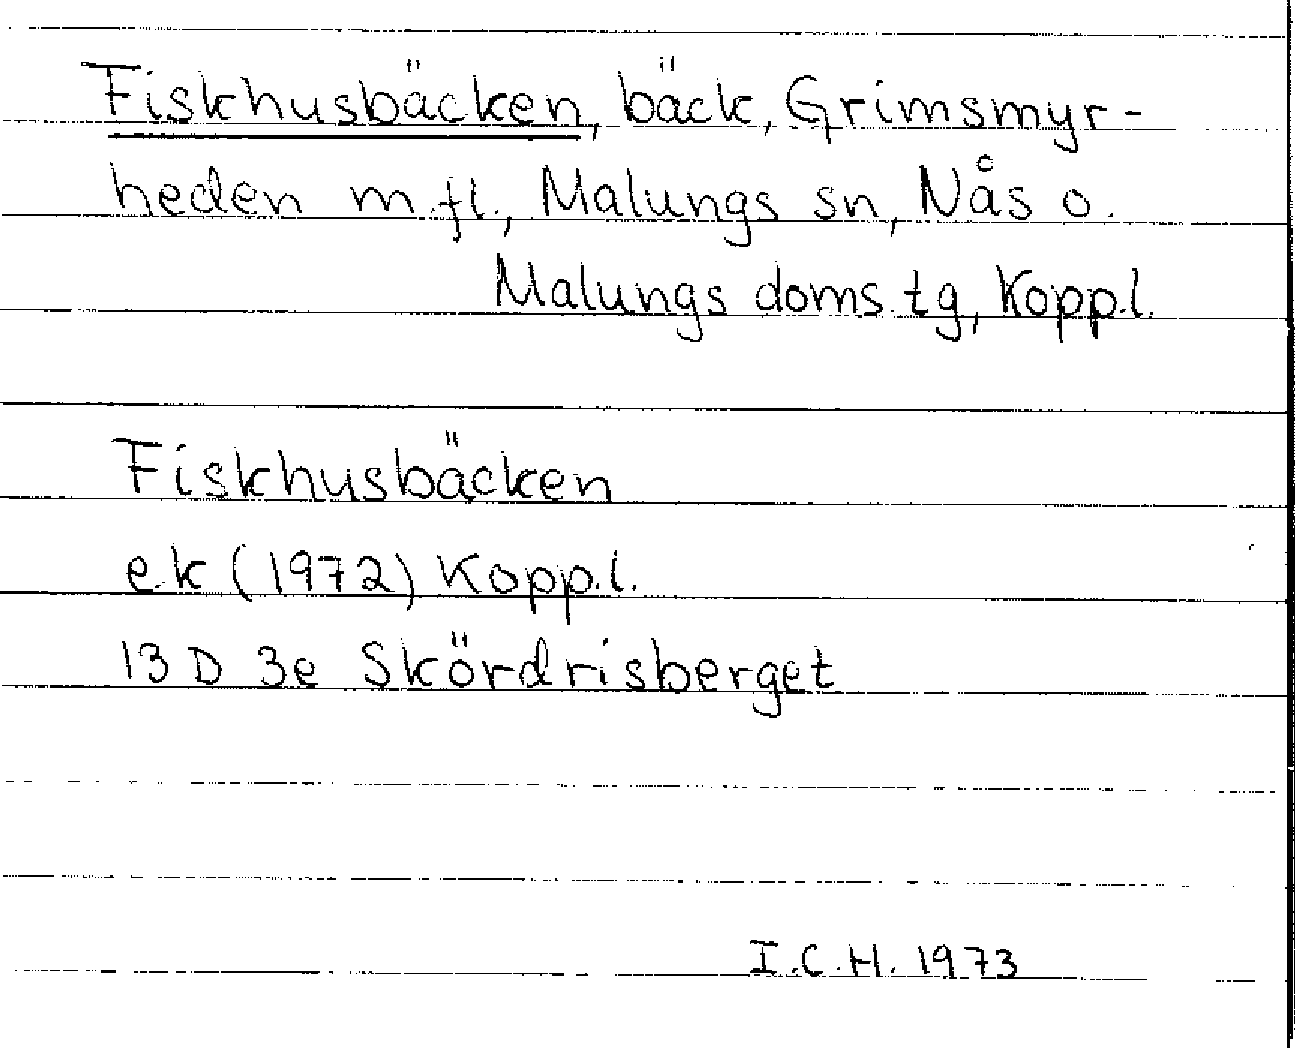 Fiskhusbäcken, bäck, Grimsmyr-
heden m.fl., Malungs sn, Nås o.
Malungs doms.tg, Kopp.l.
Fiskhusbäcken
ek (1972) Kopp.l.
13 D 3e Skördrisberget
I.C.H. 1973